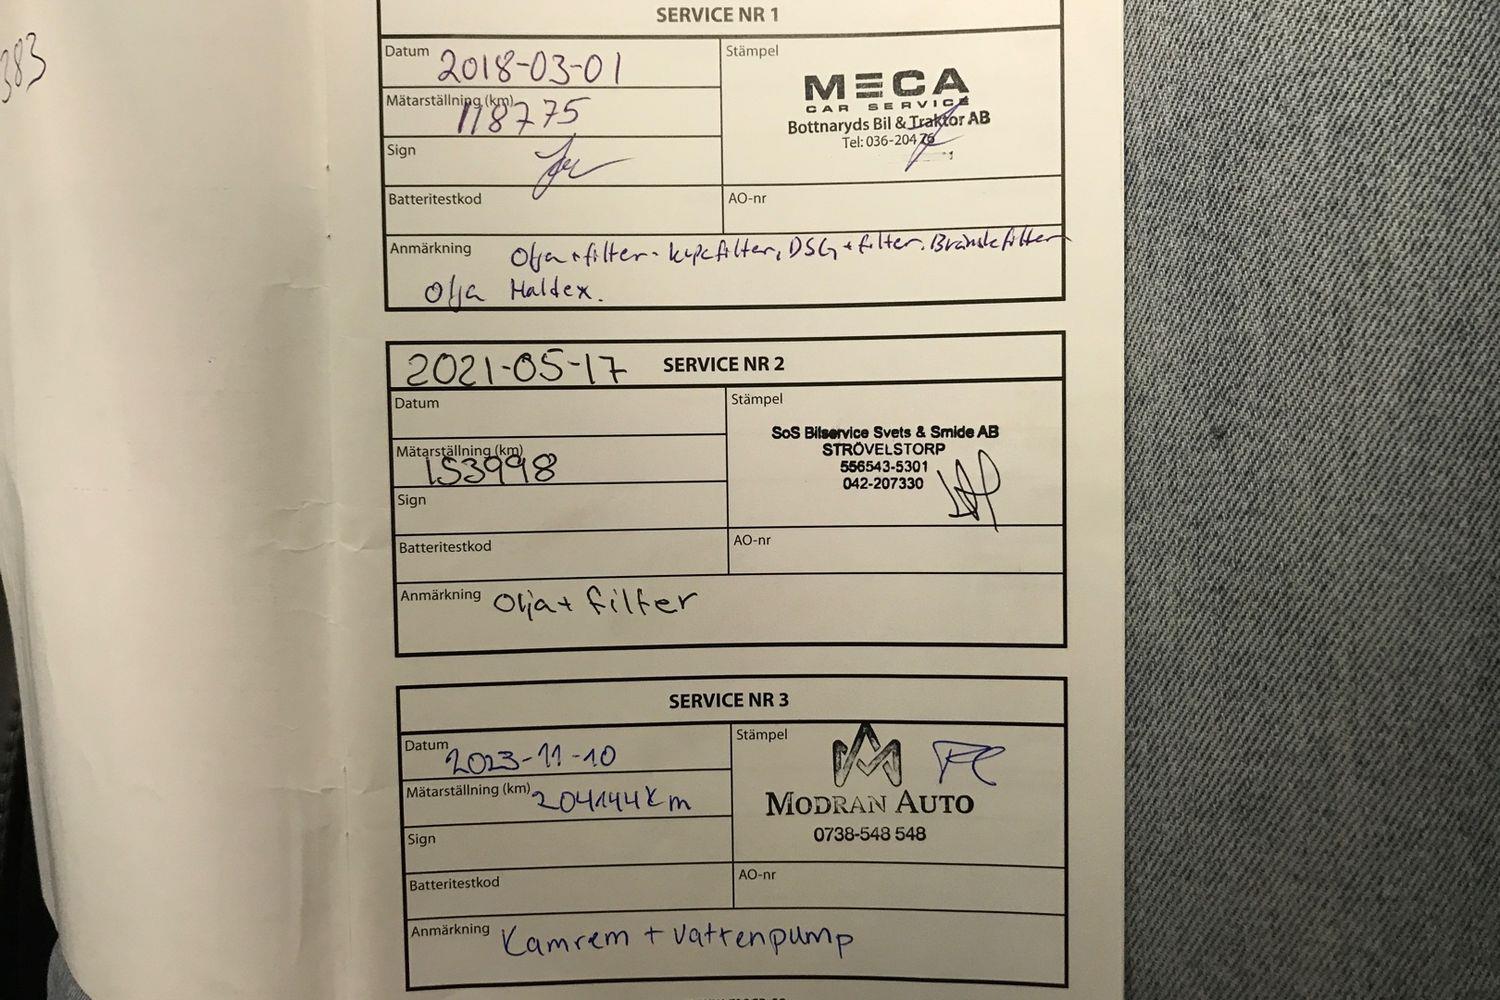 383
SERVICE NR 1
Datum 2018-03-01
Stämpel
MECA
CAR SERVICE
Bottnaryds Bil & Traktor AB
Tel: 036-204 76
Mätarställning (km) 118775
Sign
Batteritestkod
AO-nr
Anmärkning Olja + filter - kupefilter, DSG + filter. Bränslefilter
Olja Haldex.
2021-05-17 SERVICE NR 2
Datum
Stämpel
SoS Bilservice Svets & Smide AB
STRÖVELSTORP
556543-5301
042-207330
Mätarställning (km) 153998
Sign
Batteritestkod
AO-nr
Anmärkning Olja + filter
SERVICE NR 3
Datum 2023-11-10
Stämpel
MODRAN AUTO
0738-548 548
Mätarställning (km) 204144 km
Sign
Batteritestkod
AO-nr
Anmärkning Kamrem + vattenpump